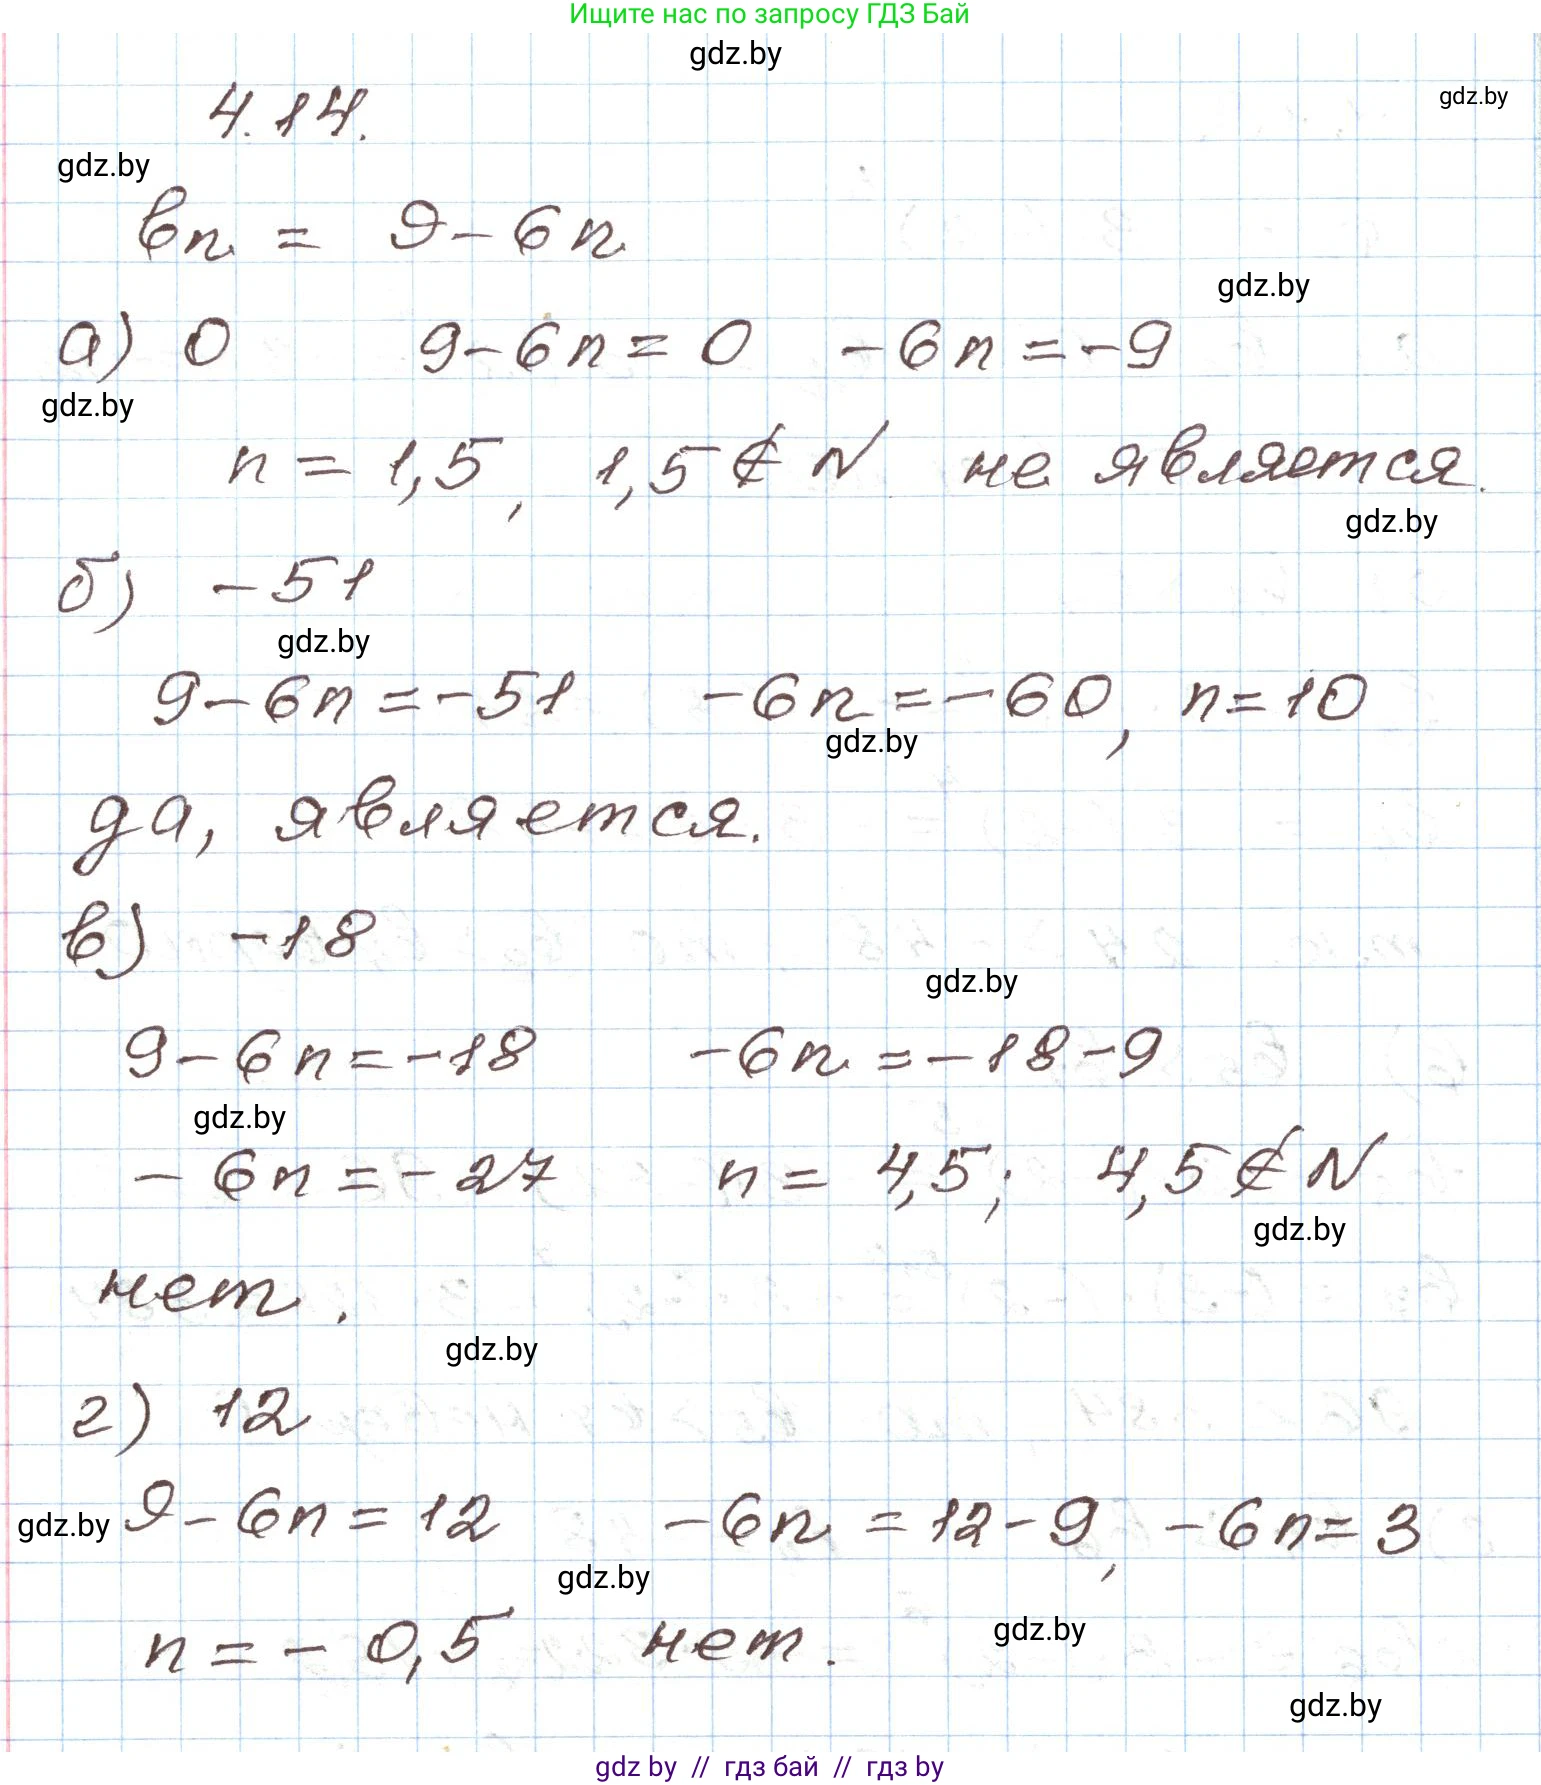 Ищите нас по запросу ГДЗ Бай
gdz.by
gdz.by
4.14.
gdz.by
вn = 9-6n
gdz.by
а) 0 9-6n=0 -6n=-9
gdz.by
n=1,5, 1,5∉N не является.
gdz.by
б) -51
gdz.by
9-6n=-51 -6n=-60, n=10
gdz.by
да, является.
в) -18
gdz.by
9-6n=-18 -6n=-18-9
gdz.by
-6n=-27 n=4,5; 4,5∉N
gdz.by
нет.
gdz.by
г) 12
gdz.by 9-6n=12 -6n=12-9, -6n=3
gdz.by
n=-0,5 нет.
gdz.by
gdz.by
gdz by // гдз бай // гдз by